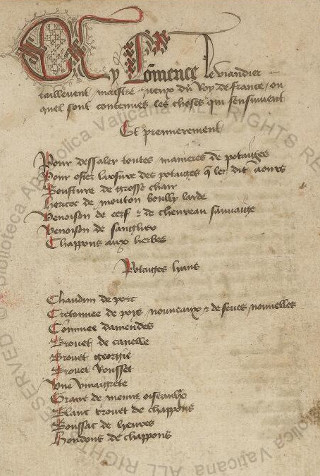 Cy Comence le viandier
taillevent maistre queux du Roy de france ou
quel sont contenues les choses qui sensuiuent
Et premierement
Pour dessaler toutes manieres de potaiges
Pour oster larsure des potaiges q̄ len dit aours
Bousture de grosse chair
Hericoc de mouton boully larde
Venoison de cerf & de cheureau sauuaige
Venoison de sanglier
Chappons aux herbes
Potaiges lians
Chaudun de porc
Cretonnee de poys nouueaux & de feues nouuelles
Comminee damendes
Brouet de canelle
Brouet georgie
Brouet Rousset
Vne vinaigrete
Graue de menuz oiseaulx
Blanc brouet de chappons
Boussac de lieures
Houdons de chappons
© Biblioteca Apostolica Vaticana ALL RIGHTS RESERVED